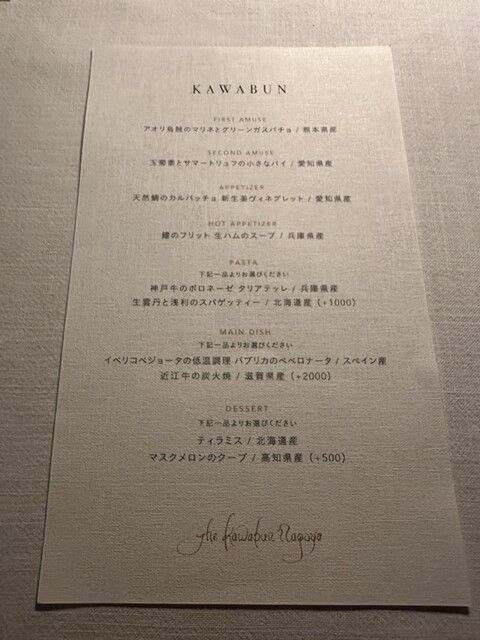 KAWABUN
FIRST AMUSE
アオリ烏賊のマリネとグリーンガスパチョ / 熊本県産
SECOND AMUSE
玉蜀黍とサマートリュフの小さなパイ / 愛知県産
APPETIZER
天然鯛のカルパッチョ 新生姜ヴィネグレット / 愛知県産
HOT APPETIZER
鱧のフリット 生ハムのスープ / 兵庫県産
PASTA
下記一品よりお選びください
神戸牛のボロネーゼ タリアテッレ / 兵庫県産
生雲丹と浅利のスパゲッティー / 北海道産 (+1000)
MAIN DISH
下記一品よりお選びください
イベリコベジョータの低温調理 パプリカのペペロナータ / スペイン産
近江牛の炭火焼 / 滋賀県産 (+2000)
DESSERT
下記一品よりお選びください
ティラミス / 北海道産
マスクメロンのクープ / 高知県産 (+500)
The Kawabun Nagoya